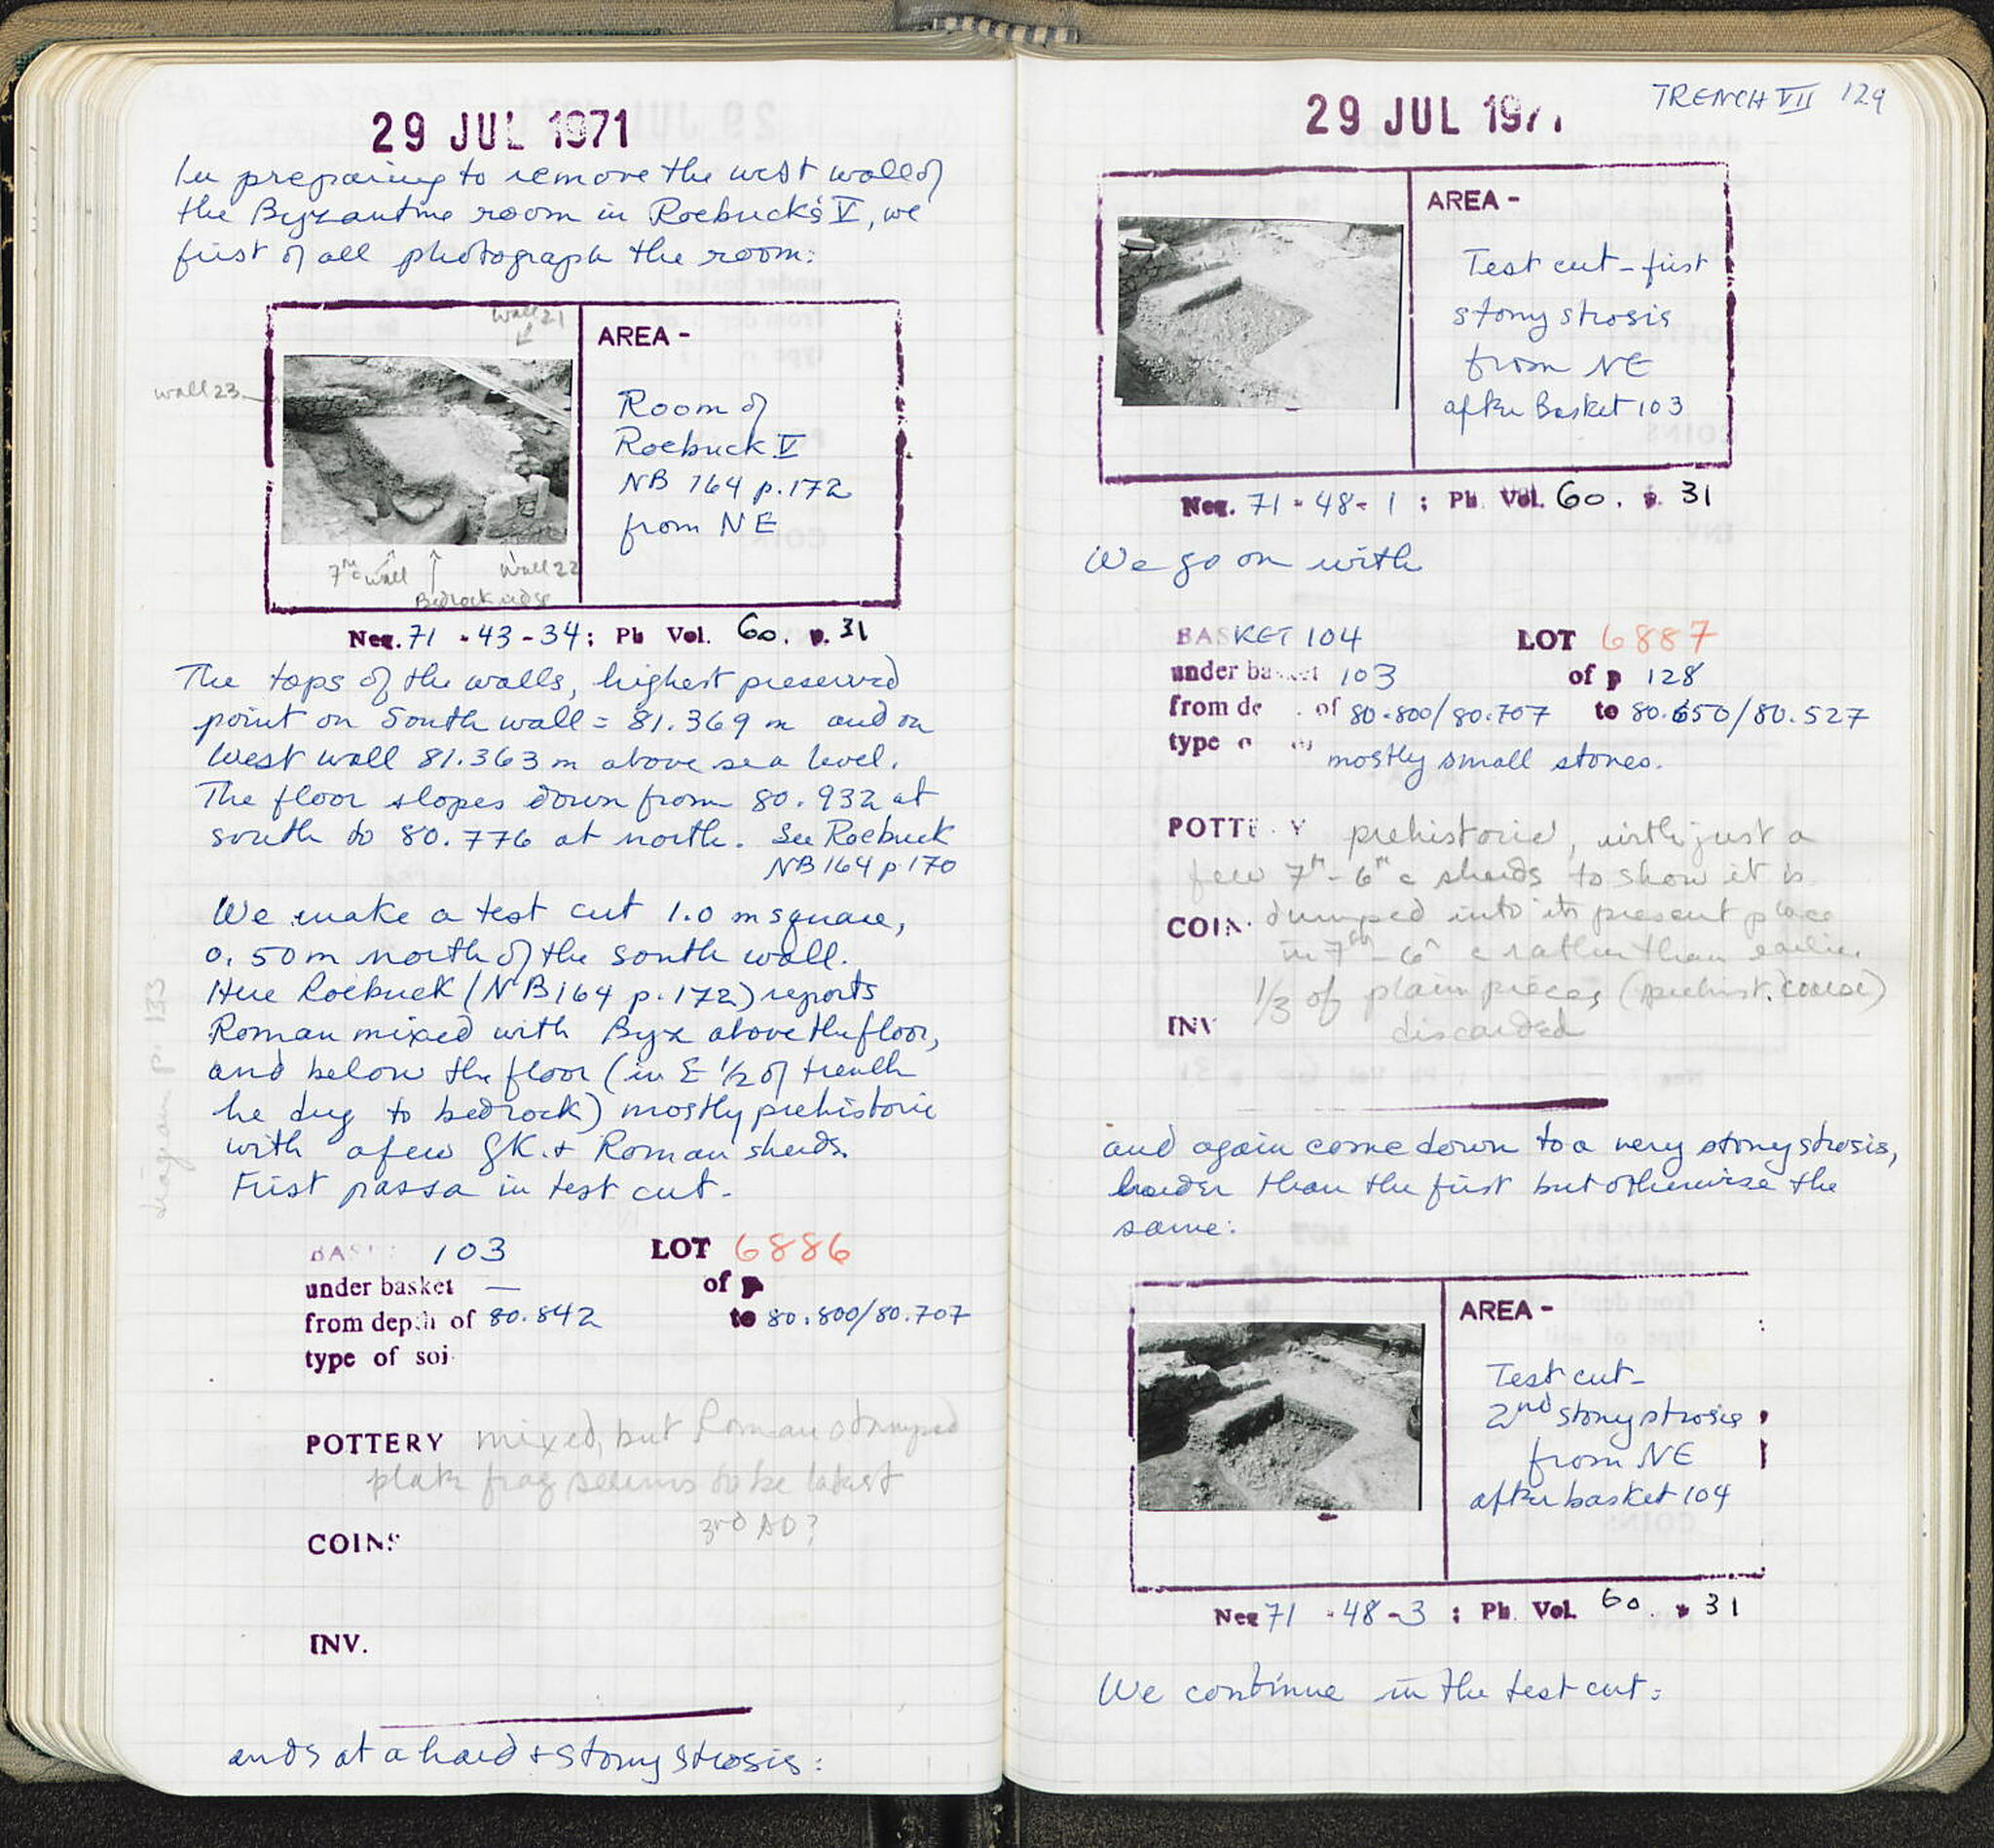 29 JUL 1971
In preparing to remove the west wall of
the Byzantine room in Roebuck's V, we
first of all photograph the room:
wall 21
wall 23
AREA -
Room of
Roebuck V
NB 164 p.172
from NE
7th c wall
Wall 22
Bedrock edge
Neg. 71 - 43 - 34; Ph Vol. 60. p. 31
The tops of the walls, highest preserved
point on South wall = 81.369 m and on
West wall 81.363 m above sea level.
The floor slopes down from 80.932 at
south to 80.776 at north. See Roebuck
NB 164 p 170
We make a test cut 1.0 m square,
0.50 m north of the south wall.
Here Roebuck (NB 164 p. 172) reports
Roman mixed with Byz above the floor,
and below the floor (in E 1/2 of trench
he dug to bedrock) mostly prehistoric
with a few GK. + Roman sherds.
First passa in test cut.
diagram p. 133
BAS 103 LOT 6886
under basket — of p
from depth of 80.842 to 80.800/80.707
type of soi
POTTERY mixed, but Roman stamped
plate frag seems to be latest
3rd AD?
COINS
INV.
ends at a hard + stony strosis:
TRENCH VII 129
29 JUL 197
AREA -
Test cut - first
stony strosis
from NE
after Basket 103
Neg. 71 - 48 - 1 ; Ph Vol. 60. p. 31
We go on with
BASKET 104 LOT 6887
under basket 103 of p 128
from de of 80.800/80.707 to 80.650/80.527
type o mostly small stones.
POTTERY prehistoric, with just a
few 7th - 6th c sherds to show it is
COIN. dumped into its present place
in 7th - 6th c rather than earlier.
1/3 of plain pieces (prehist. coarse)
INV discarded
and again come down to a very stony strosis,
harder than the first but otherwise the
same:
AREA -
Test cut -
2nd stony strosis
from NE
after basket 104
Neg 71 - 48 - 3 ; Ph. Vol. 60. p 31
We continue in the test cut: